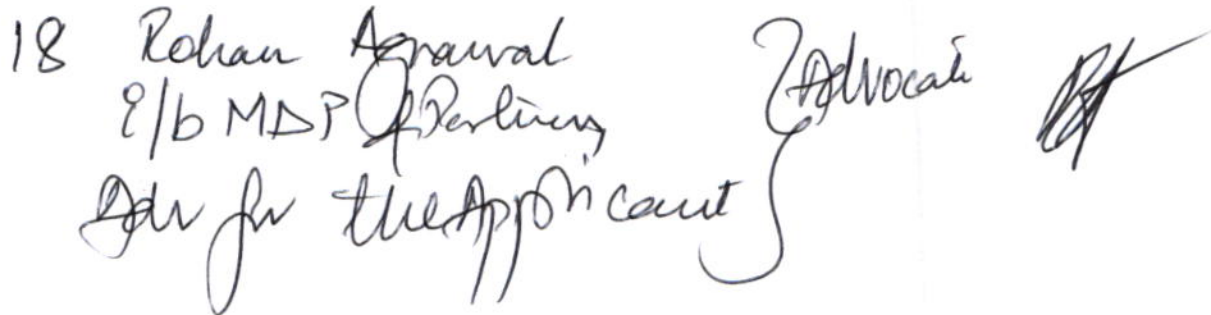 18 Rohan Agrawal
i/b MDP & Partners
Adv for the Applicant
Advocate